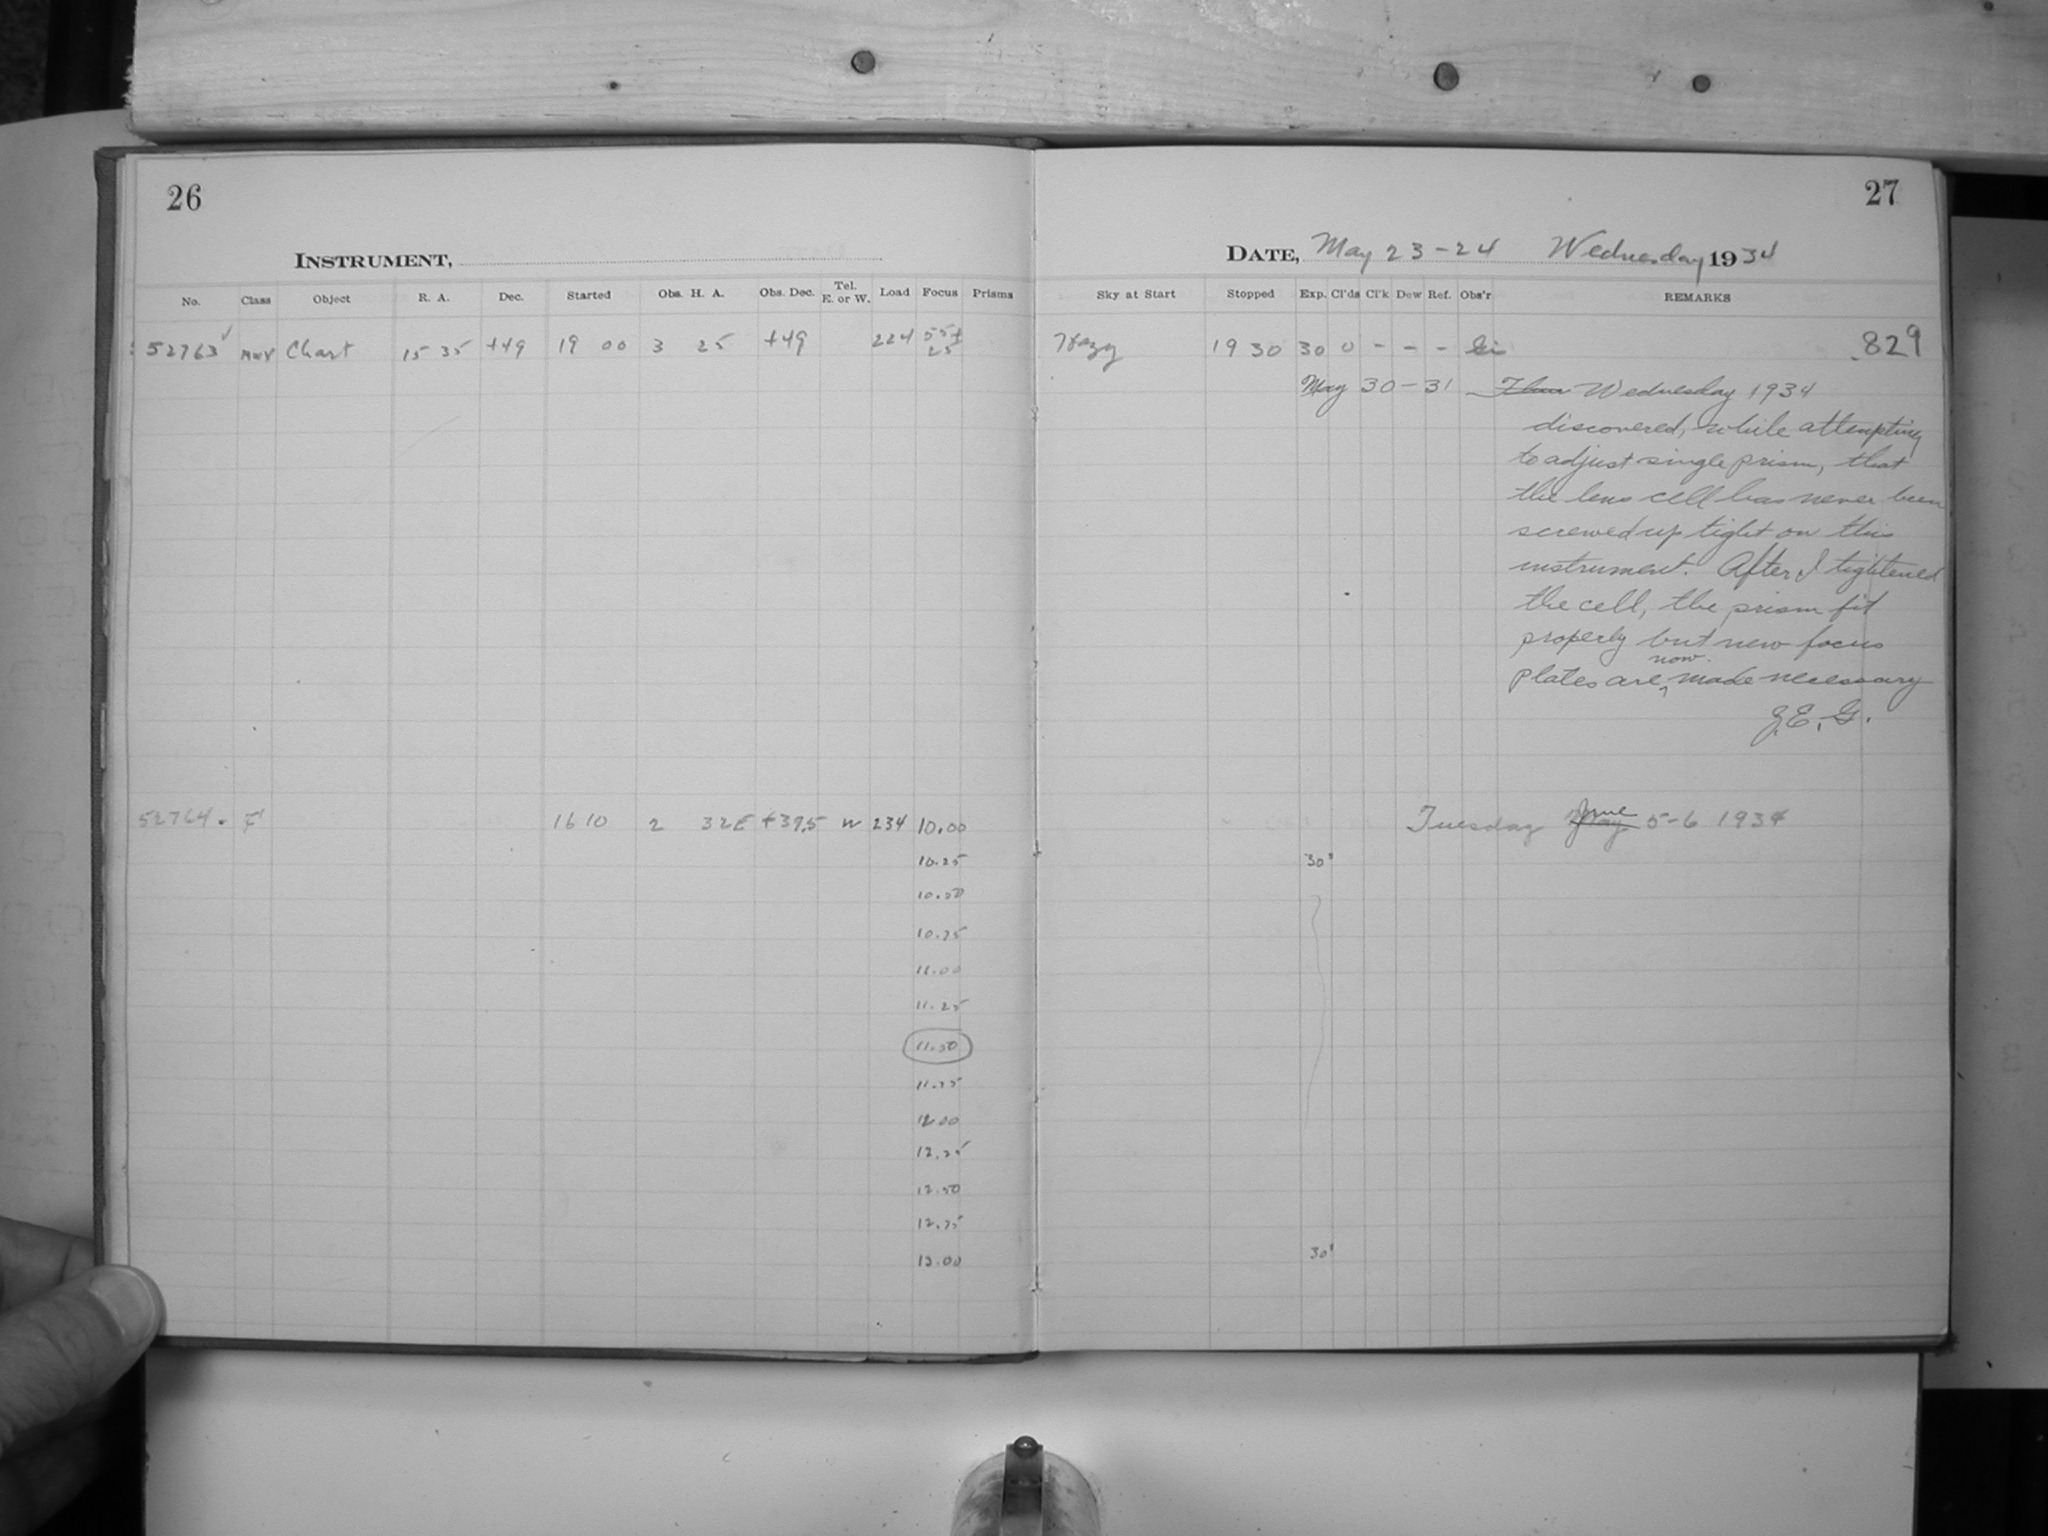 26
INSTRUMENT,
No. Class Object R. A. Dec. Started Obs. H. A. Obs. Dec. Tel. E. or W. Load Focus Prisms
52763 Chart 15 35 +49 19 00 3 25 +49 224
52764 F 16 10 2 32E +39.5 W 234 10.00
10.25
10.50
10.75
11.00
11.25
11.50
11.75
12.00
12.25
12.50
12.75
13.00
27
DATE, May 23-24 Wednesday 1934
Sky at Start Stopped Exp. Cl'ds Cl'k Dew Ref. Obs'r REMARKS
Hazy 19 30 30 0 - - - Gi 829
May 30-31 Wednesday 1934
discovered, while attempting
to adjust single prism, that
the lens cell has never been
screwed up tight on this
instrument. After I tightened
the cell, the prism fit
properly but new focus
plates are now made necessary
J.E.G.
Tuesday June 5-6 1934
30s
30s